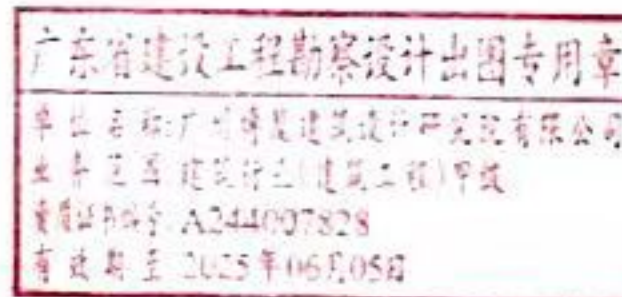 广东省建设工程勘察设计出图专用章
单位名称:广州建筑设计研究院有限公司
业务范围:建筑行业(建筑工程)甲级
资质证书编号:A244007828
有效期至:2025年06月05日